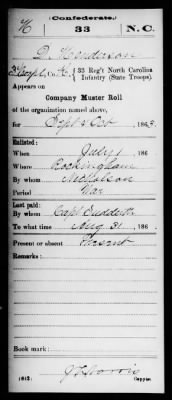 (Confederate.)
H 33 N.C.
D. Henderson
Co. H, 33 Reg't North Carolina
Infantry (State Troops).
Appears on
Company Muster Roll
of the organization named above,
for Sept & Oct, 1863.
Enlisted:
When July 1, 186
Where Rockingham
By whom Nicholson
Period War
Last paid:
By whom Capt
To what time Aug 31, 186
Present or absent Present
Remarks:
Book mark:
(642)
Copyist.